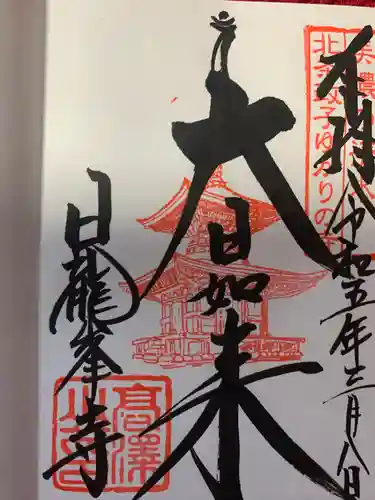 奉拝
令和五年三月八日
美濃
北条政子ゆかりの
大日如来
日龍峯寺
高澤